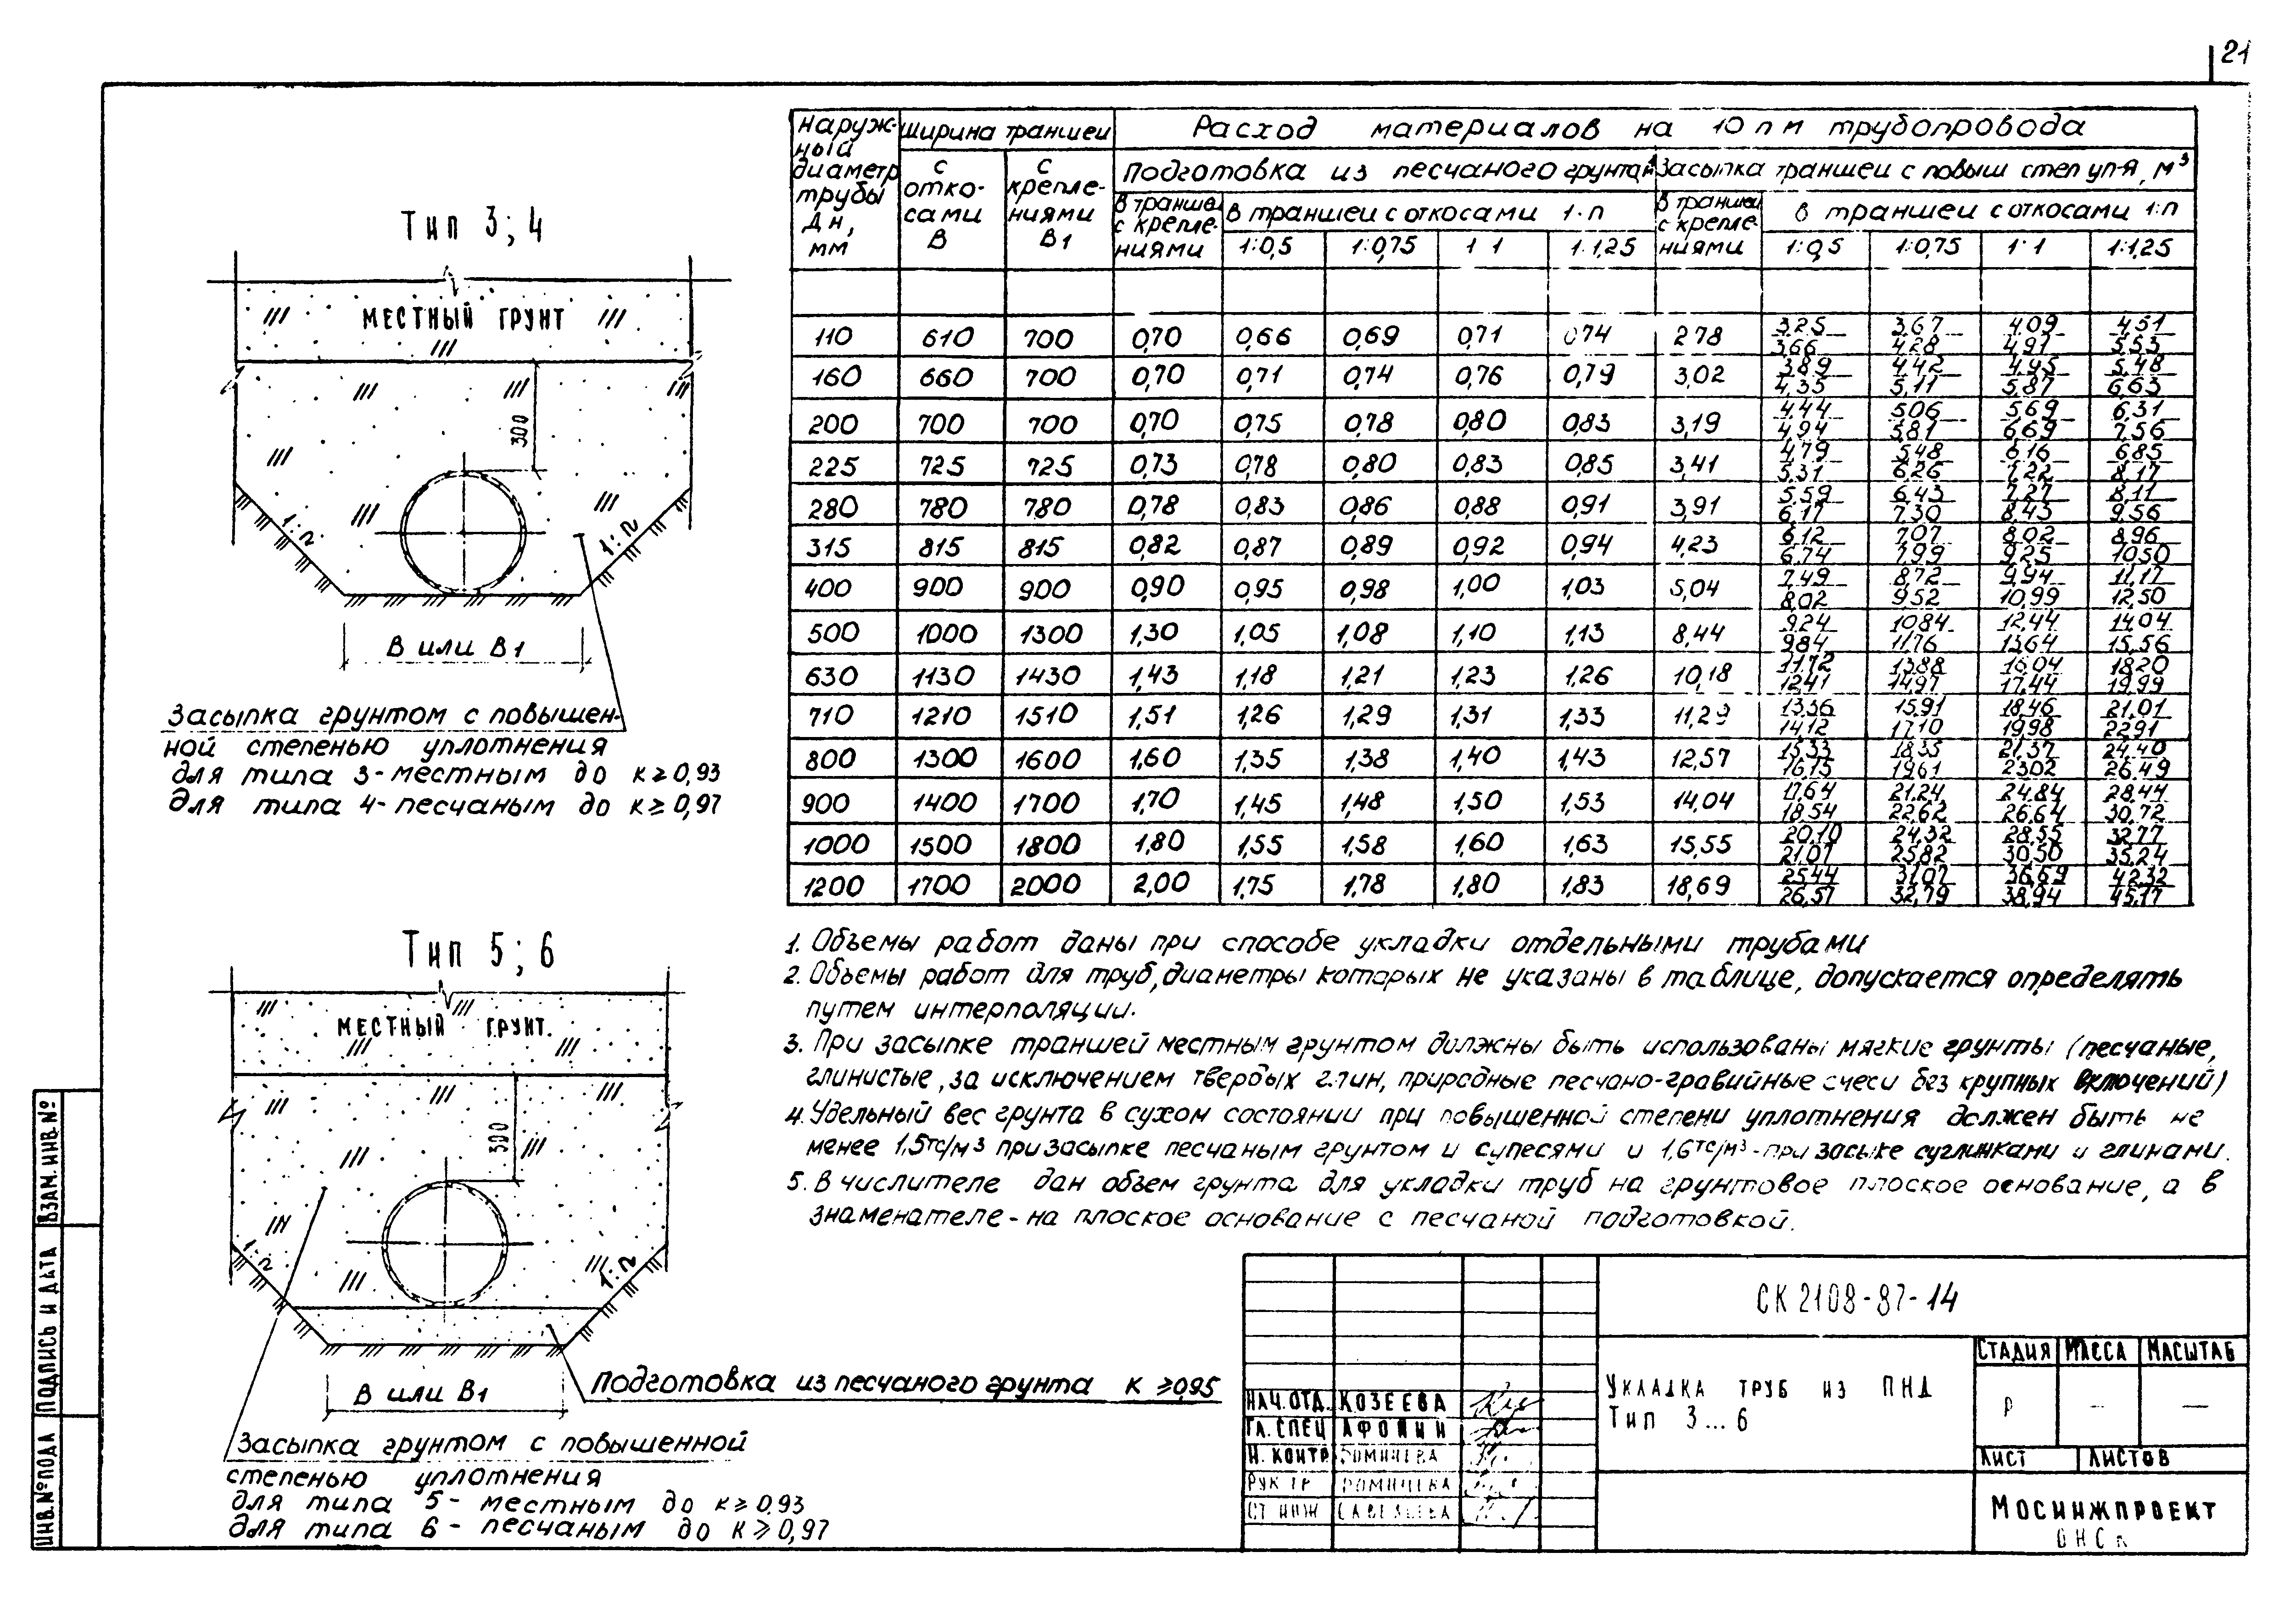 21
Тип 3; 4
МЕСТНЫЙ ГРУНТ
300
1:n
1:n
В или В1
Засыпка грунтом с повышен-
ной степенью уплотнения
для типа 3-местным до К≥0,93
для типа 4-песчаным до К≥0,97
Тип 5; 6
МЕСТНЫЙ ГРУНТ.
300
1:n
1:n
В или В1
Подготовка из песчаного грунта К ≥0,95
Засыпка грунтом с повышенной
степенью уплотнения
для типа 5 - местным до К≥0,93
для типа 6 - песчаным до К≥0,97
Наруж-ный диаметр трубы Дн, мм | Ширина траншеи | Расход материалов на 10 пм трубопровода
с отко-сами В | с крепле-ниями В1 | Подготовка из песчаного грунта, м³ | Засыпка траншеи с повыш степ уп-я, м³
В траншеи с крепле-ниями | В траншеи с откосами 1:n | В траншеи с крепле-ниями | В траншеи с откосами 1:n
1:0,5 | 1:0,75 | 1:1 | 1:1,25 | 1:0,5 | 1:0,75 | 1:1 | 1:1,25
110 | 610 | 700 | 0,70 | 0,66 | 0,69 | 0,71 | 0,74 | 2,78 | 3,25/3,66 | 3,67/4,28 | 4,09/4,91 | 4,51/5,53
160 | 660 | 700 | 0,70 | 0,71 | 0,74 | 0,76 | 0,79 | 3,02 | 3,89/4,35 | 4,42/5,11 | 4,95/5,87 | 5,48/6,63
200 | 700 | 700 | 0,70 | 0,75 | 0,78 | 0,80 | 0,83 | 3,19 | 4,44/4,94 | 5,06/5,81 | 5,69/6,69 | 6,31/7,56
225 | 725 | 725 | 0,73 | 0,78 | 0,80 | 0,83 | 0,85 | 3,41 | 4,79/5,31 | 5,48/6,26 | 6,16/7,22 | 6,85/8,17
280 | 780 | 780 | 0,78 | 0,83 | 0,86 | 0,88 | 0,91 | 3,91 | 5,59/6,17 | 6,43/7,30 | 7,27/8,43 | 8,11/9,56
315 | 815 | 815 | 0,82 | 0,87 | 0,89 | 0,92 | 0,94 | 4,23 | 6,12/6,74 | 7,07/7,99 | 8,02/9,25 | 8,96/10,50
400 | 900 | 900 | 0,90 | 0,95 | 0,98 | 1,00 | 1,03 | 5,04 | 7,49/8,02 | 8,72/9,52 | 9,94/10,99 | 11,17/12,50
500 | 1000 | 1300 | 1,30 | 1,05 | 1,08 | 1,10 | 1,13 | 8,44 | 9,24/9,84 | 10,84/11,76 | 12,44/13,64 | 14,04/15,56
630 | 1130 | 1430 | 1,43 | 1,18 | 1,21 | 1,23 | 1,26 | 10,18 | 11,72/12,41 | 13,88/14,97 | 16,04/17,44 | 18,20/19,99
710 | 1210 | 1510 | 1,51 | 1,26 | 1,29 | 1,31 | 1,33 | 11,29 | 13,36/14,12 | 15,91/17,10 | 18,46/19,98 | 21,01/22,91
800 | 1300 | 1600 | 1,60 | 1,35 | 1,38 | 1,40 | 1,43 | 12,57 | 15,33/16,15 | 18,35/19,61 | 21,37/23,02 | 24,40/26,49
900 | 1400 | 1700 | 1,70 | 1,45 | 1,48 | 1,50 | 1,53 | 14,04 | 17,64/18,54 | 21,24/22,62 | 24,84/26,64 | 28,44/30,72
1000 | 1500 | 1800 | 1,80 | 1,55 | 1,58 | 1,60 | 1,63 | 15,55 | 20,10/21,07 | 24,32/25,82 | 28,55/30,50 | 32,77/35,24
1200 | 1700 | 2000 | 2,00 | 1,75 | 1,78 | 1,80 | 1,83 | 18,69 | 25,44/26,57 | 31,07/32,79 | 36,69/38,94 | 42,32/45,17
1. Объемы работ даны при способе укладки отдельными трубами
2. Объемы работ для труб, диаметры которых не указаны в таблице, допускается определять
путем интерполяции.
3. При засыпке траншей местным грунтом должны быть использованы мягкие грунты (песчаные,
глинистые, за исключением твердых глин, природные песчано-гравийные смеси без крупных включений)
4. Удельный вес грунта в сухом состоянии при повышенной степени уплотнения должен быть не
менее 1,5тс/м3 при засыпке песчаным грунтом и супесями и 1,6тс/м³-при засыке суглинками и глинами.
5. В числителе дан объем грунта для укладки труб на грунтовое плоское основание, а в
знаменателе - на плоское основание с песчаной подготовкой.
СК 2108-87-14
Укладка труб из ПНД
Тип 3...6
СТАДИЯ МАССА МАСШТАБ
Р - -
ЛИСТ ЛИСТОВ
МОСИНЖПРОЕКТ
НАЧ.ОТД. КОЗЕЕВА
ГЛ.СПЕЦ АФОНИН
Н. КОНТР
РУК ГР
СТ ИНЖ
ВЗАМ.ИНВ.№
ПОДПИСЬ И ДАТА
ИНВ.№ПОДЛ